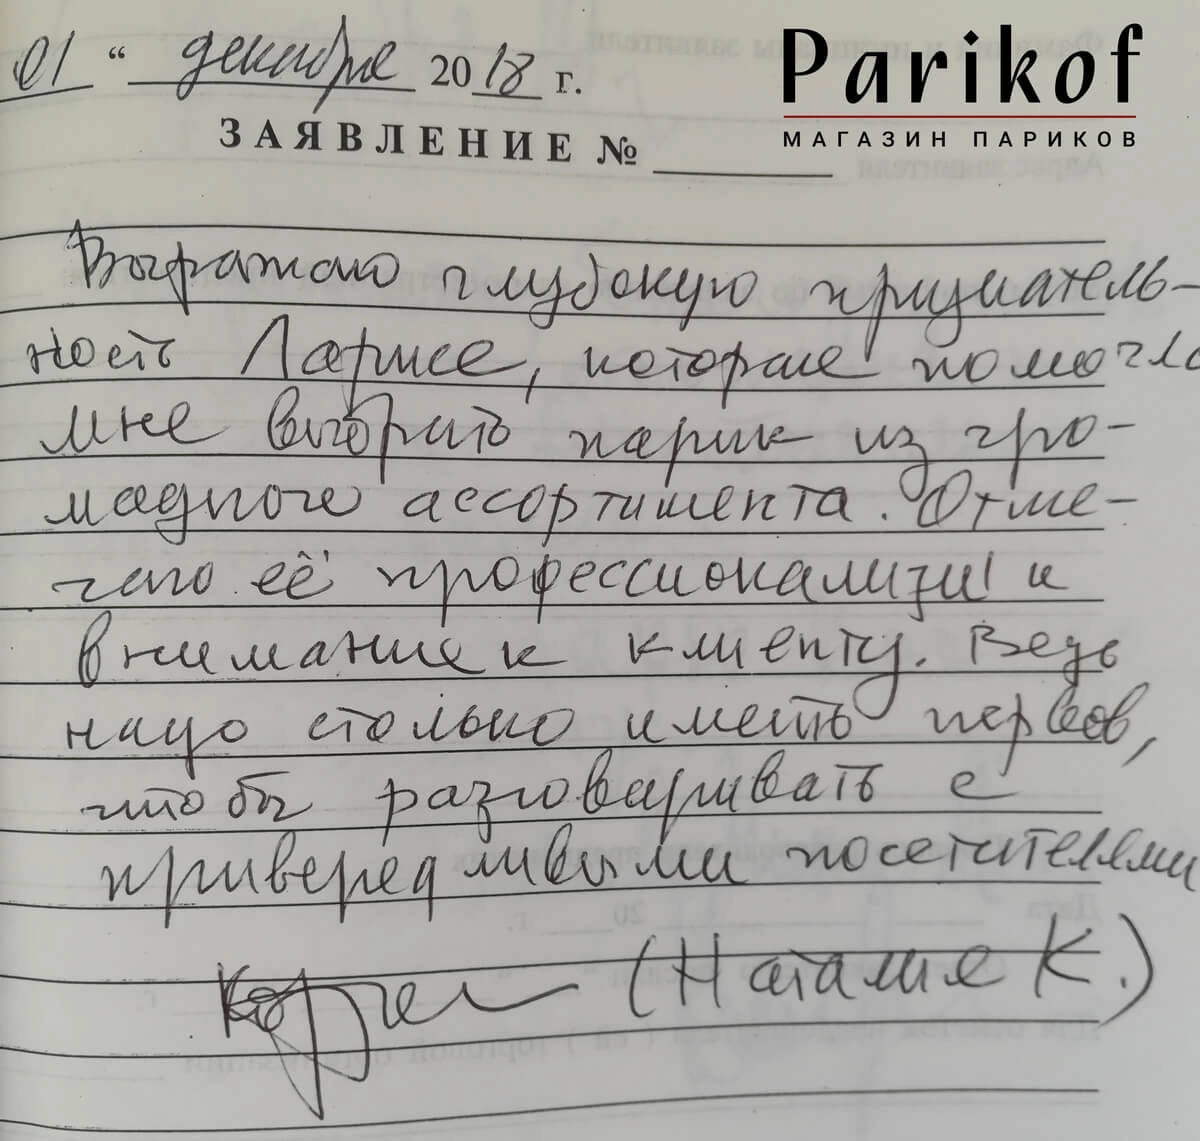 01 " декабря 2018 г.
Parikof
МАГАЗИН ПАРИКОВ
ЗАЯВЛЕНИЕ №
Выражаю глубокую признатель-
ность Ларисе, которая помогла
мне выбрать парик из гро-
мадного ассортимента. Отме-
чаю её профессионализм и
внимание к клиенту. Ведь
надо столько иметь нервов,
чтобы разговаривать с
привередливыми посетителями
(Наталия К.)